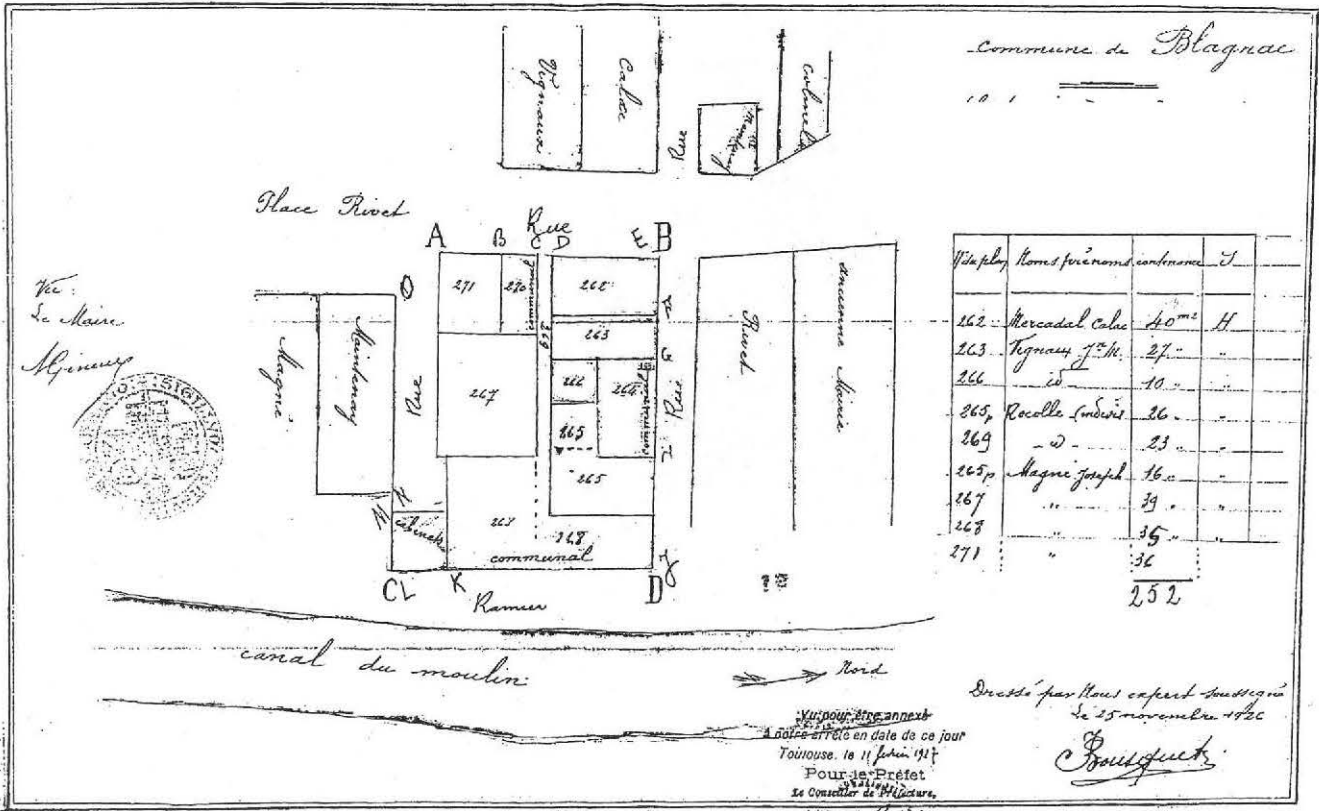 Commune de Blagnac
Vignaux
Calac
Rue
Colmel
Place Rivet
A B Rue C D E B
Vu:
Le Maire
271
270
262
263
269
267
266
264
265
265
268
communal
cabinets
Rue
Rue
Maintenay
Magné
Rivet
Ancienne Mairie
C L K D
Ramier
canal du moulin
Nord
N° du plan Noms prénoms contenance S
262 Mercadal Calac 40 m² H
263 Vignaux Jn M. 27 "
266 id 10 "
265p Rocolle Indivis 26 "
269 - d - 23 "
265p Magné Joseph 16 "
267 " 39 "
268 " 35 "
271 " 36
252
Dressé par Nous expert soussigné
Le 25 novembre 1926
Bousquet
Vu pour être annexé
à notre arrêté en date de ce jour
Toulouse, le 11 février 1927
Pour le Préfet
Le Conseiller de Préfecture,